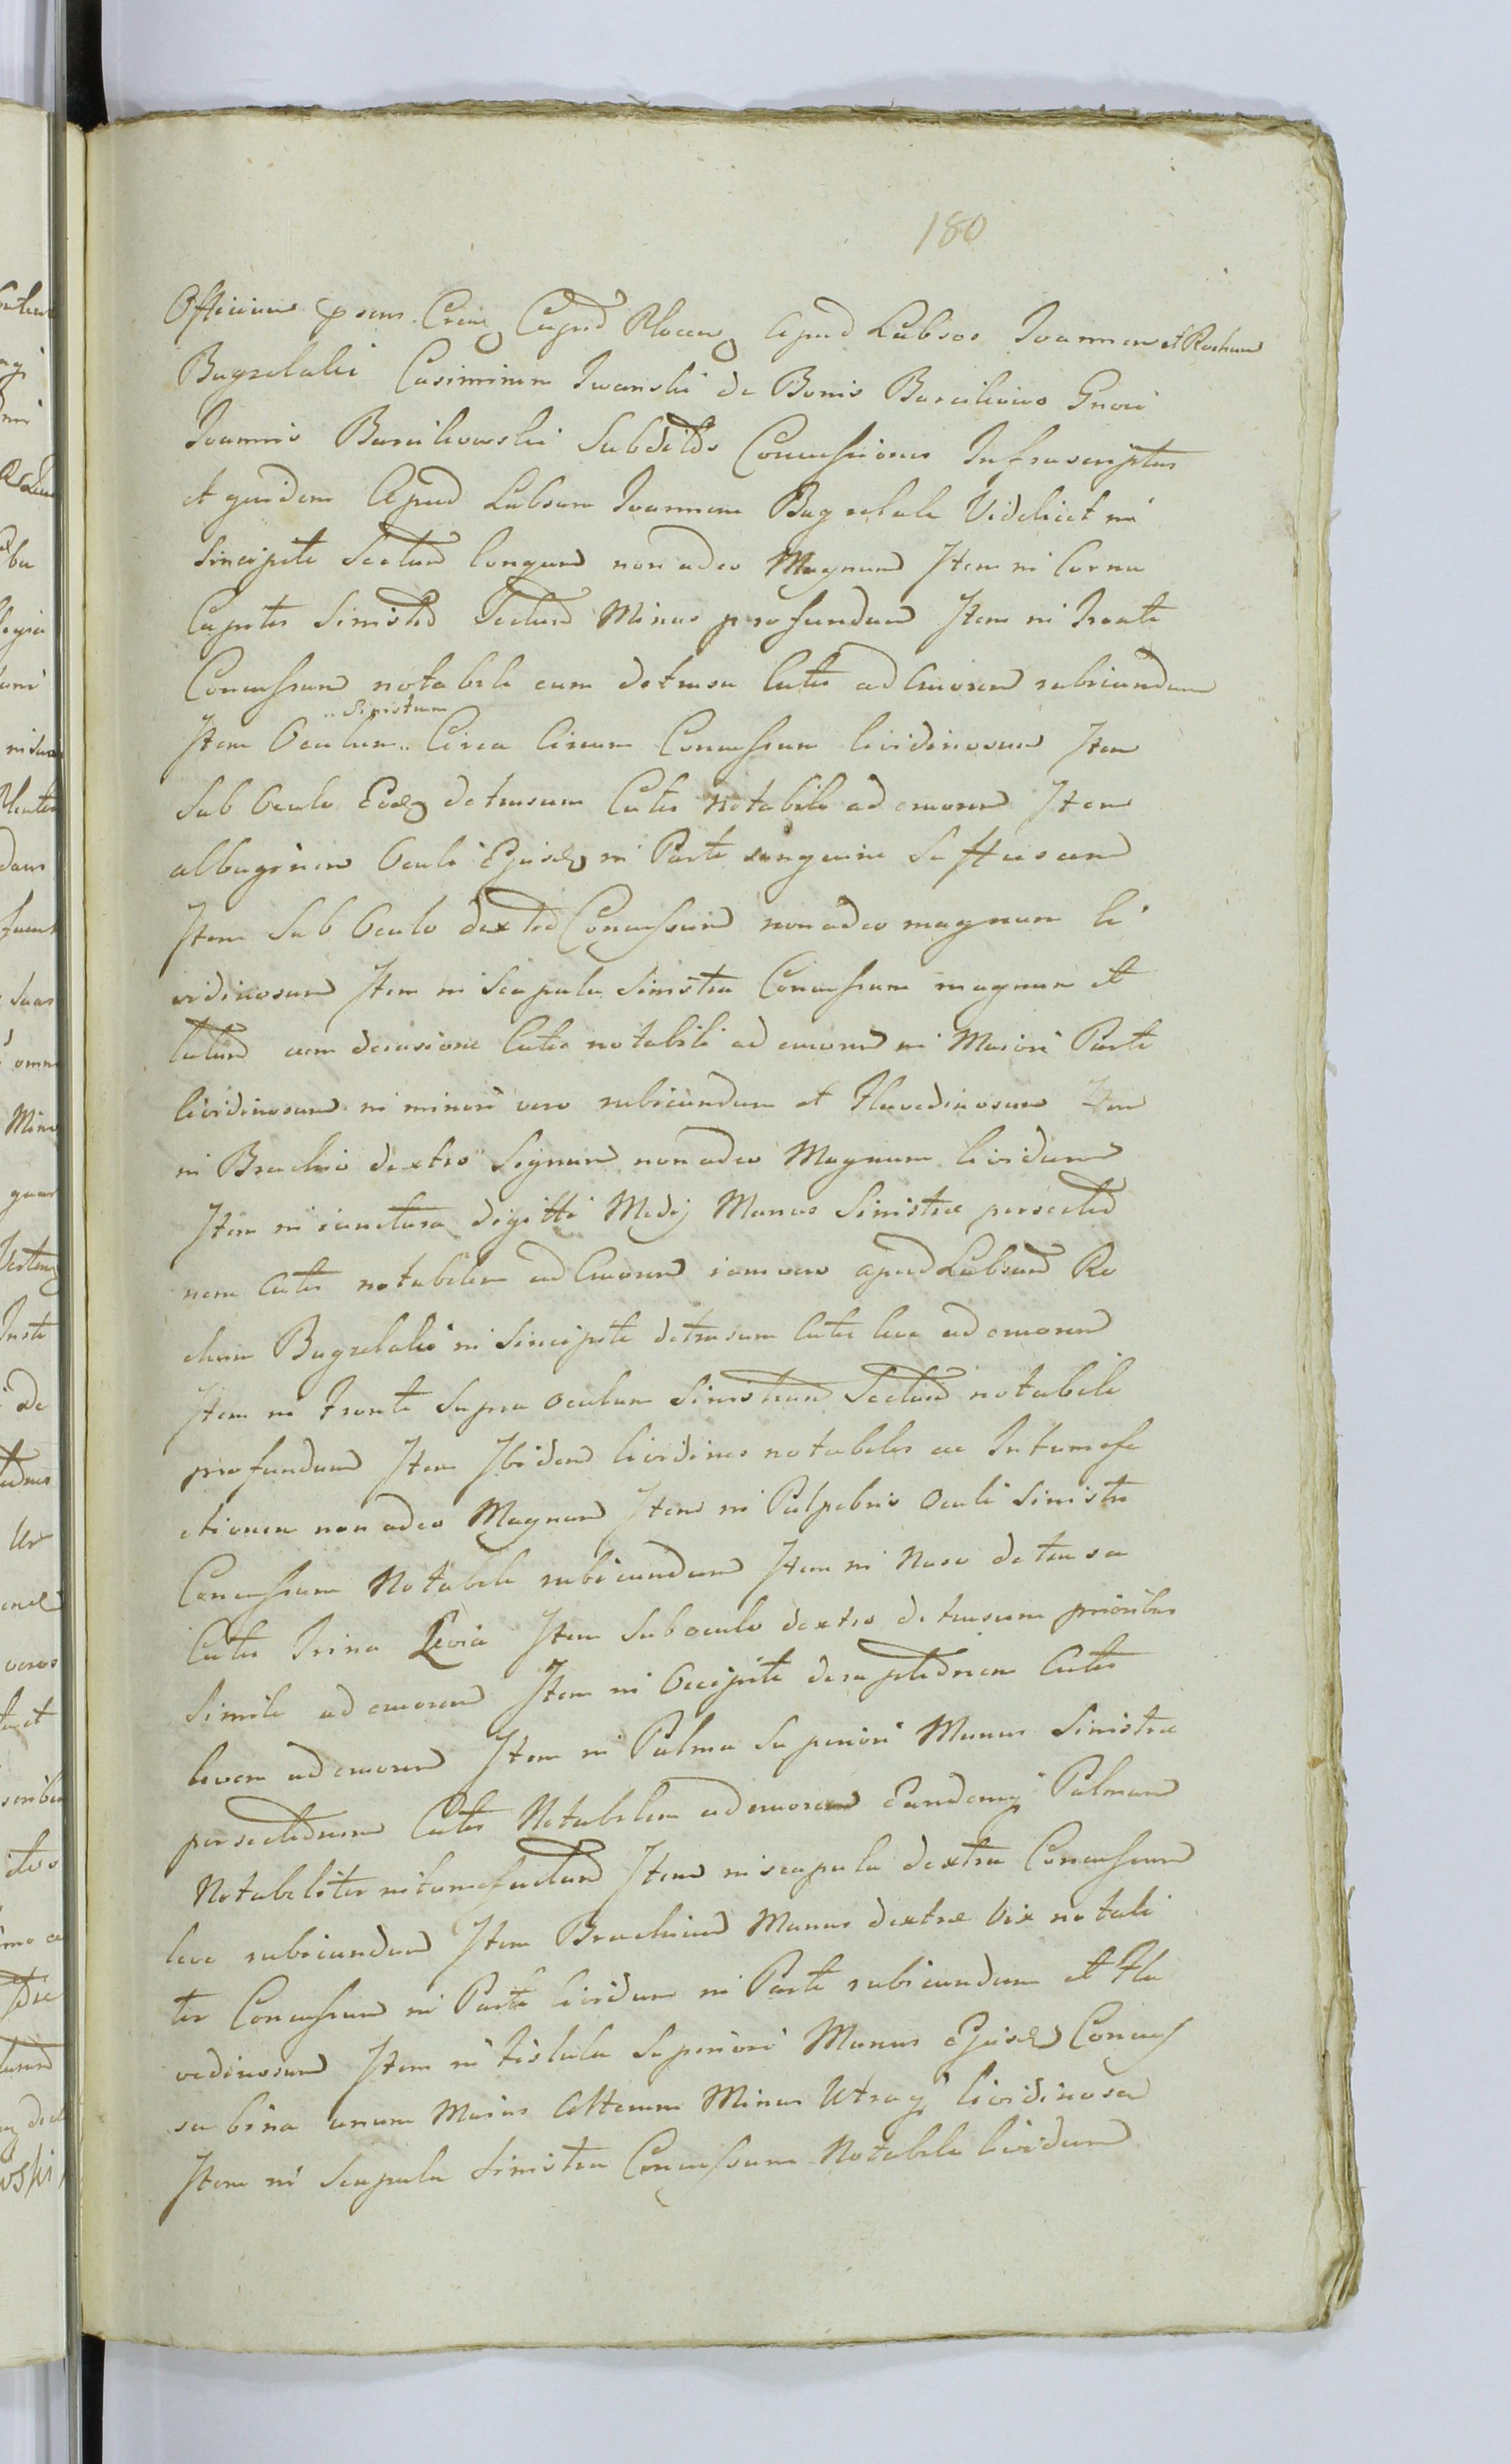 180
Officium psens Apud Labsos Joannem et Rochum
Bagzelalii Casimirum Iwanski de Bonis Barcikowo Gnosi
Joannis Barcikowski Subditos Concussiones Infrascriptas
et quidem Apud Labsum Joannem Bagzelale Videlicet in
Sincipite Sectum longum non adeo Magnum Item in Cornu
Capitis Sinistro Sectum Minus profundum Item in Fronte
Concussum notabile cum detrusu Cutis ad Cruorem rubicundum
Item Oculum Circa Concussum lividinosum Item
..Sinistrum
Sub Oculo Eodq detrusum Cutis Notabile ad cruorem Item
albuginem Oculi Ejusdq in Parte sanguine Suffusam
Item Sub Oculo dextro Concussum non adeo magnum li
vidinosum Item in Scapula Sinistra Concussum magnum et
latum cum decusione Cutis notabili ad cruorem in Maiori Parte
lividinosum in minori vero rubicundum et Flavedinosum Item
in Brachio dextro Signum non adeo Magnum lividum
Item in iunctura digitti Medij Manus Sinistræ persectio
nem Cutis notabilem ad Cruorem iam vero apud Labsum Ro
chum Bagzelalii in Sincipite detrusum Cutis leve ad cruorem
Item in Fronte Supra Oculum Sinistrum Sectum notabile
profundum Item Ibidem lividines notabiles ac Intumefa
ctionem non adeo Magnam Item in Palpebris Oculi Sinistri
Concussum Notabile rubicundum Item in Naso detrusa
Cutis Trina Levia Item Sub oculo dextro detrusum prioribus
Simile ad cruorem Item in Occipite deruptionem Cutis
levem ad cruorem Item in Palma Superiori Manus Sinistræ
persectionem Cutis Notabilem ad cruorem Eandemq Palmam
Notabeliter intumefactam Item in scapula dextra Concussum
leve rubicundum Item Brachium Manus dextræ Vix notali
ter Concussum in Parte lividum in Parte rubicundum et Fla
vedinosum Item in fistula Superiori Manus Ejusdq Concus
sa bina unum Maius Alterum Minus Utraq lividinosa
Item in Scapula Sinistra Concussum Notabile lividum